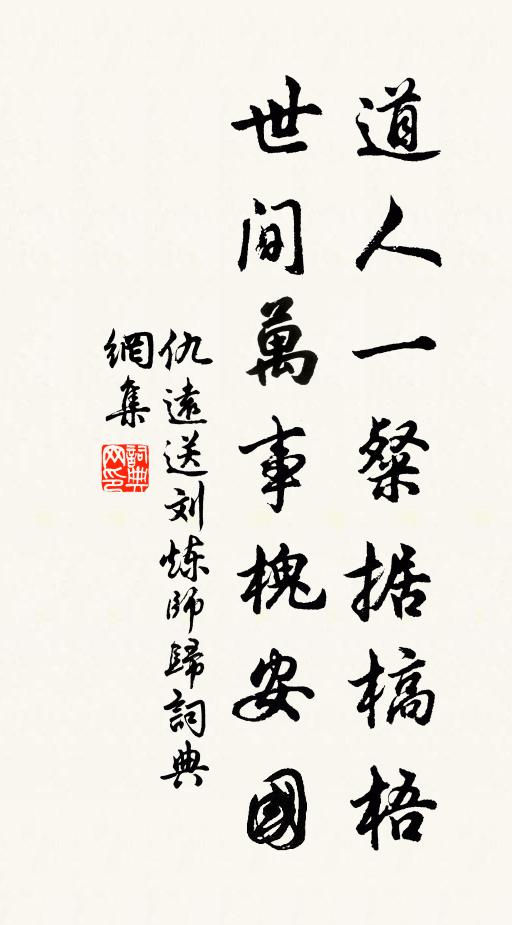 道人一粲据槁梧
世间萬事槐安國
仇遠送刘炼師歸詞典
網集
詞典
网印